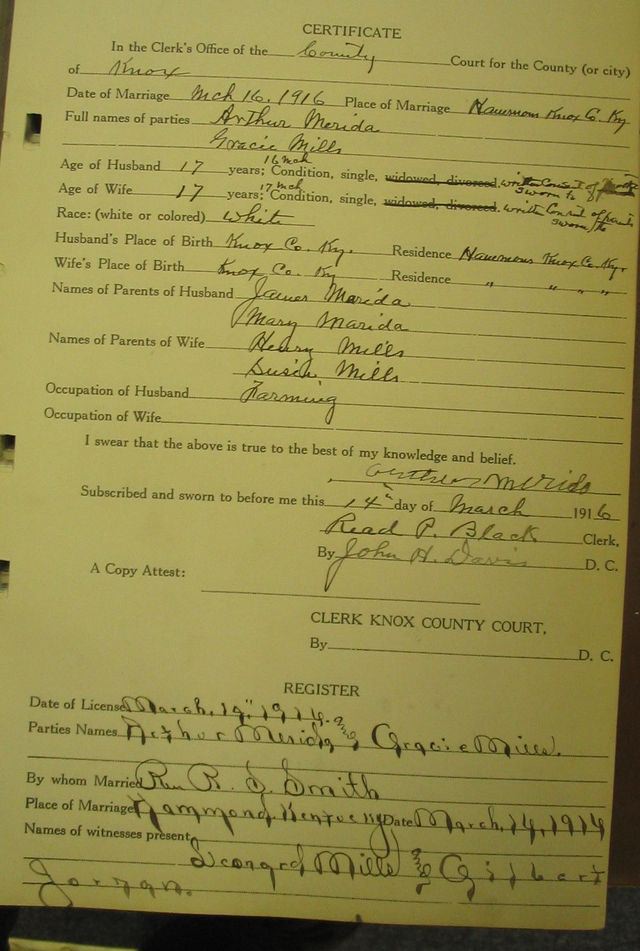 CERTIFICATE
In the Clerk's Office of the County Court for the County (or city)
of Knox
Date of Marriage Mch 16, 1916 Place of Marriage Hammons Knox Co. Ky
Full names of parties Arthur Merida
Gracie Mills
16 mch
Age of Husband 17 years; Condition, single, widowed, divorced. written Consent of
sworn to
17 mch
Age of Wife 17 years; Condition, single, widowed, divorced. written Consent of parents
sworn to
Race: (white or colored) White
Husband's Place of Birth Knox Co. Ky. Residence Hammons Knox Co. Ky.
Wife's Place of Birth Knox Co. Ky Residence " " " "
Names of Parents of Husband James Marida
Mary Marida
Names of Parents of Wife Henry Mills
Susie Mills
Occupation of Husband Farming
Occupation of Wife
I swear that the above is true to the best of my knowledge and belief.
Arthur Merida
Subscribed and sworn to before me this 14" day of March 1916
Read P. Black Clerk.
By John H. Davis D. C.
A Copy Attest:
CLERK KNOX COUNTY COURT,
By D. C.
REGISTER
Date of License March, 1916.
Parties Names Arthur Merida and Gracie Mills.
By whom Married Rev R. Smith
Place of Marriage Hammond, Kentucky Date March, 1916
Names of witnesses present
Leonard Mills & Gilbert
Jorzan.